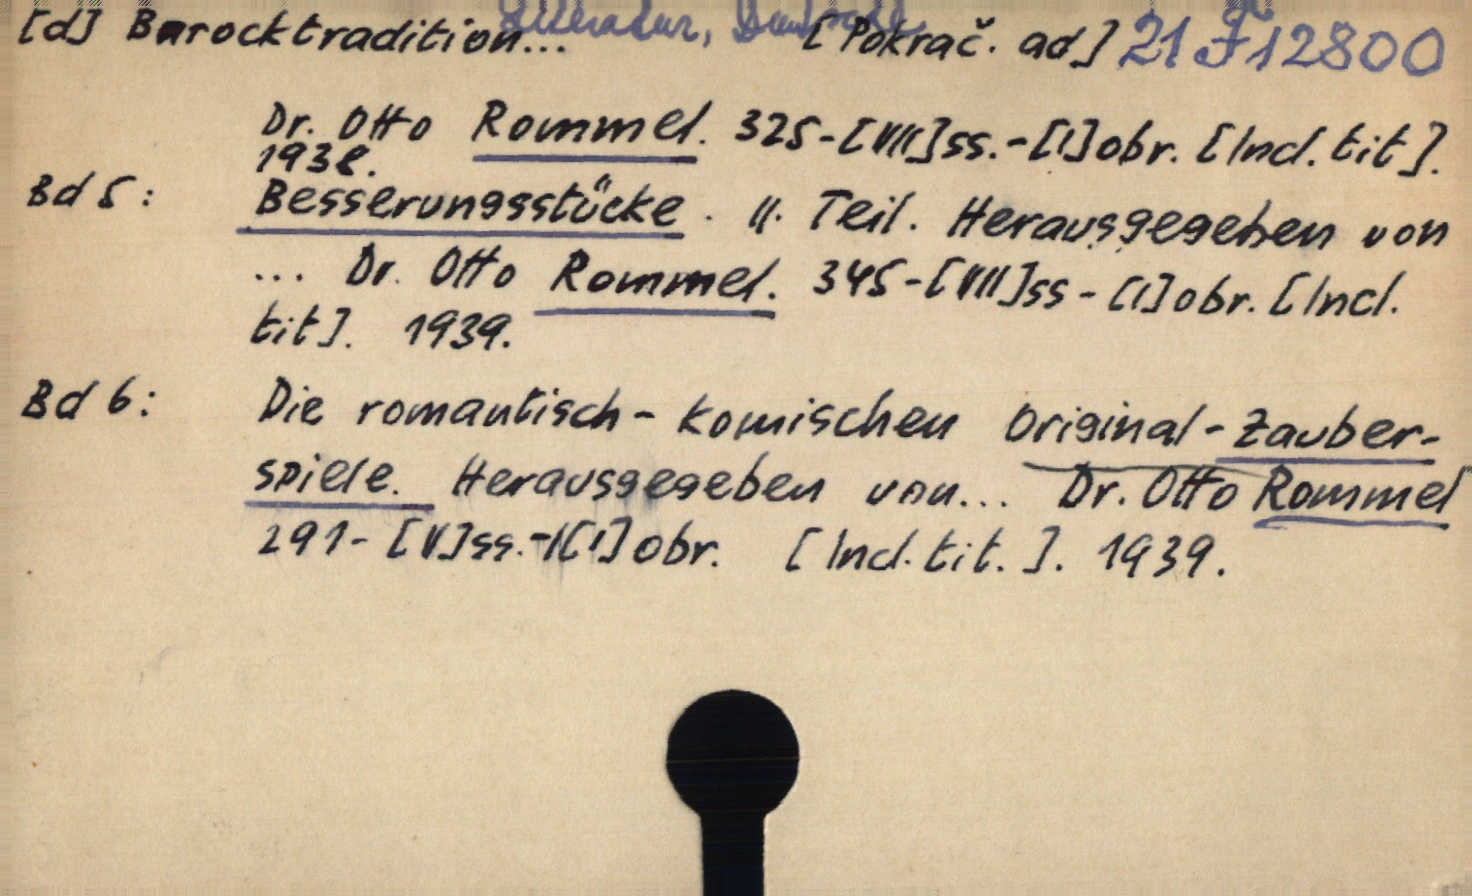 Literatur, Deutsche
[d] Barocktradition... [Pokrač. ad] 21 F 12800
Dr. Otto Rommel. 325-[VII]ss.-[I]obr. [Incl. tit].
1938.
Bd 5: Besserungsstücke. II. Teil. Herausgegeben von
... Dr. Otto Rommel. 345-[VII]ss-[I]obr. [Incl.
tit]. 1939.
Bd 6: Die romantisch-komischen Original-Zauber-
spiele. Herausgegeben von... Dr. Otto Rommel
291-[V]ss.-[I]obr. [Incl. tit.]. 1939.